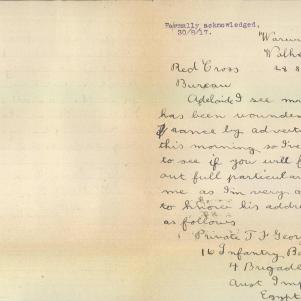 Formally acknowledged,
30/8/17.
"Warw
Walk
Red Cross 28 8
Bureau
Adelaide I see m
has been wounde
France by advert
this morning so I've
to see if you will f
out full particular
me as I'm very a
to know his addre
as follows
Private T J Geor
16 Infantry Ba
4 Brigade
Aust Imp
Egypt